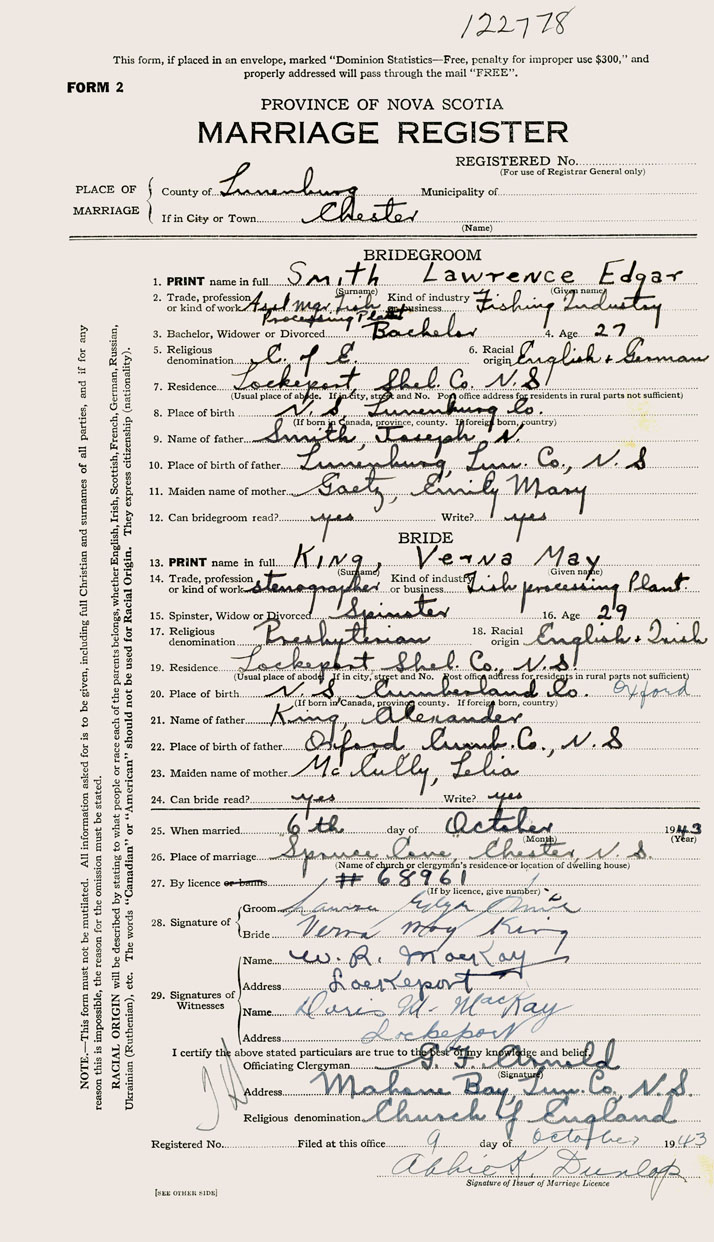 122778
This form, if placed in an envelope, marked "Dominion Statistics—Free, penalty for improper use $300," and
properly addressed will pass through the mail "FREE".
FORM 2
PROVINCE OF NOVA SCOTIA
MARRIAGE REGISTER
REGISTERED No.
(For use of Registrar General only)
PLACE OF MARRIAGE
County of Lunenburg Municipality of
If in City or Town Chester
(Name)
BRIDEGROOM
1. PRINT name in full Smith Lawrence Edgar
(Surname) (Given name)
2. Trade, profession or kind of work Asst mgr. Fish Processing Plant Kind of industry or business Fishing Industry
3. Bachelor, Widower or Divorced Bachelor 4. Age 27
5. Religious denomination C. of E. 6. Racial origin English + German
7. Residence Lockeport Shel. Co. N.S.
(Usual place of abode. If in city, street and No. Post office address for residents in rural parts not sufficient)
8. Place of birth N.S. Lunenburg Co.
(If born in Canada, province, county. If foreign born, country)
9. Name of father Smith, Joseph N.
10. Place of birth of father Lunenburg, Lun. Co., N.S
11. Maiden name of mother Gaetz, Emily Mary
12. Can bridegroom read? yes Write? yes
BRIDE
13. PRINT name in full King, Verna May
(Surname) (Given name)
14. Trade, profession or kind of work stenographer Kind of industry or business Fish processing Plant
15. Spinster, Widow or Divorced Spinster 16. Age 29
17. Religious denomination Presbyterian 18. Racial origin English + Irish
19. Residence Lockeport Shel. Co., N.S.
(Usual place of abode. If in city, street and No. Post office address for residents in rural parts not sufficient)
20. Place of birth N.S. Cumberland Co. Oxford
(If born in Canada, province, county. If foreign born, country)
21. Name of father King, Alexander
22. Place of birth of father Oxford Cumb. Co., N.S
23. Maiden name of mother McCully, Lelia
24. Can bride read? yes Write? yes
25. When married 6th day of October 1943
(Month) (Year)
26. Place of marriage Spruce Cove, Chester, N.S.
(Name of church or clergyman's residence or location of dwelling house)
27. By licence or banns # 68961
(If by licence, give number)
28. Signature of
Groom Edgar Smith
Bride Verna May King
29. Signatures of Witnesses
Name W. R. MacKay
Address Lockeport
Name Doris M. MacKay
Address Lockeport
I certify the above stated particulars are true to the best of my knowledge and belief.
Officiating Clergyman G. F. Arnold
(Signature)
Address Mahone Bay, Lun. Co., N.S.
Religious denomination Church of England
Registered No. Filed at this office 9 day of October 1943
Abbie K. Dunlop
Signature of Issuer of Marriage Licence
[SEE OTHER SIDE]
NOTE.—This form must not be mutilated. All information asked for is to be given, including full Christian and surnames of all parties, and if for any
reason this is impossible, the reason for the omission must be stated.
RACIAL ORIGIN will be described by stating to what people or race each of the parents belongs, whether English, Irish, Scottish, French, German, Russian,
Ukrainian (Ruthenian), etc. The words "Canadian" or "American" should not be used for Racial Origin. They express citizenship (nationality).